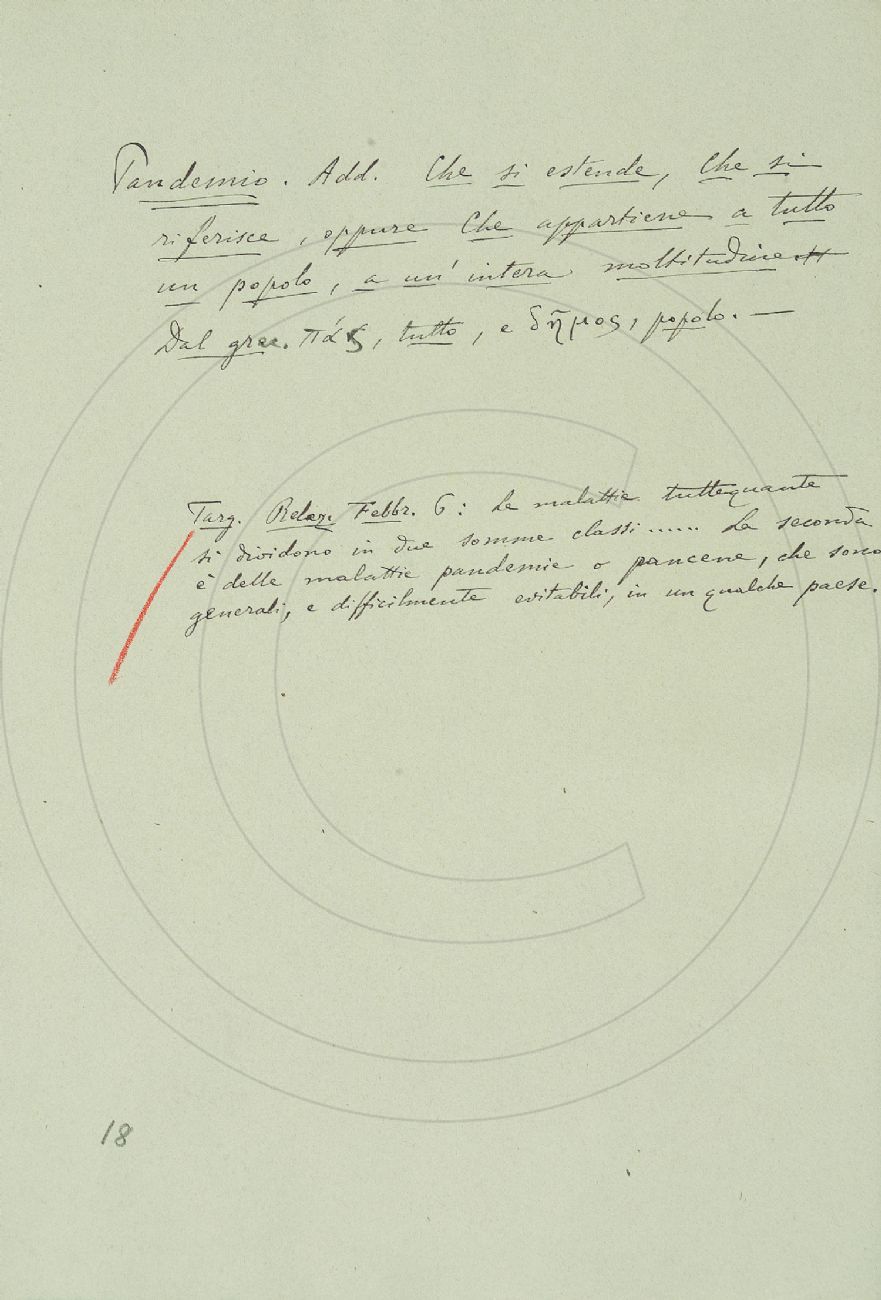 Pandemio. Add. Che si estende, Che si
riferisce, oppure Che appartiene a tutto
un popolo, a un' intera moltitudine
Dal grec. πάς, tutto, e δῆμος, popolo. —
Targ. Relaz. Febbr. 6: Le malattie tuttequante
si dividono in due somme classi...... La seconda
è delle malattie pandemie o pancene, che sono
generali, e difficilmente evitabili, in un qualche paese.
18